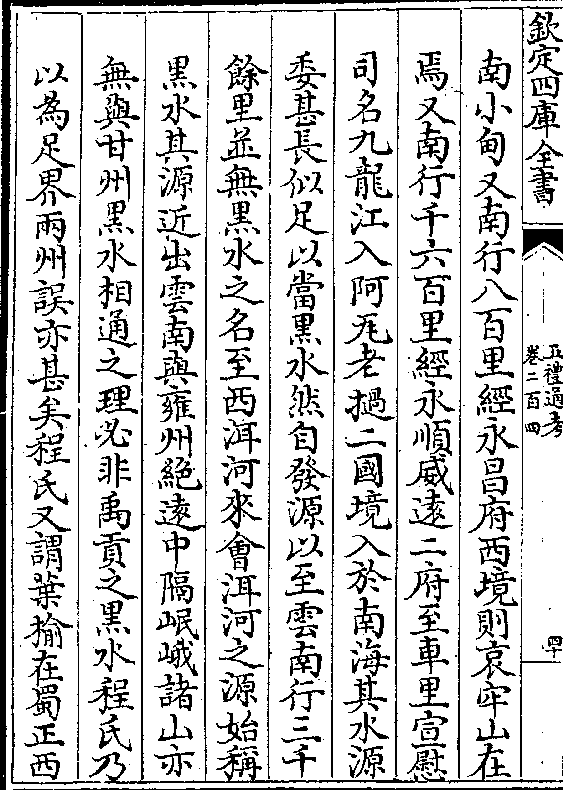 欽定四庫全書
五禮通考
卷二百四
南小甸又南行八百里經永昌府西境則哀牢山在
焉又南行千六百里經永順威逺二府至車里宣慰
司名九龍江入阿瓦老撾二國境入於南海其水源
委甚長似足以當黑水然自發源以至雲南行三千
餘里並無黑水之名至西洱河來會洱河之源始稱
黑水其源近出雲南與雍州絶逺中隔岷峨諸山亦
無與甘州黑水相通之理必非禹貢之黑水程氏乃
以為足界兩州誤亦甚矣程氏又謂葉榆在蜀正西